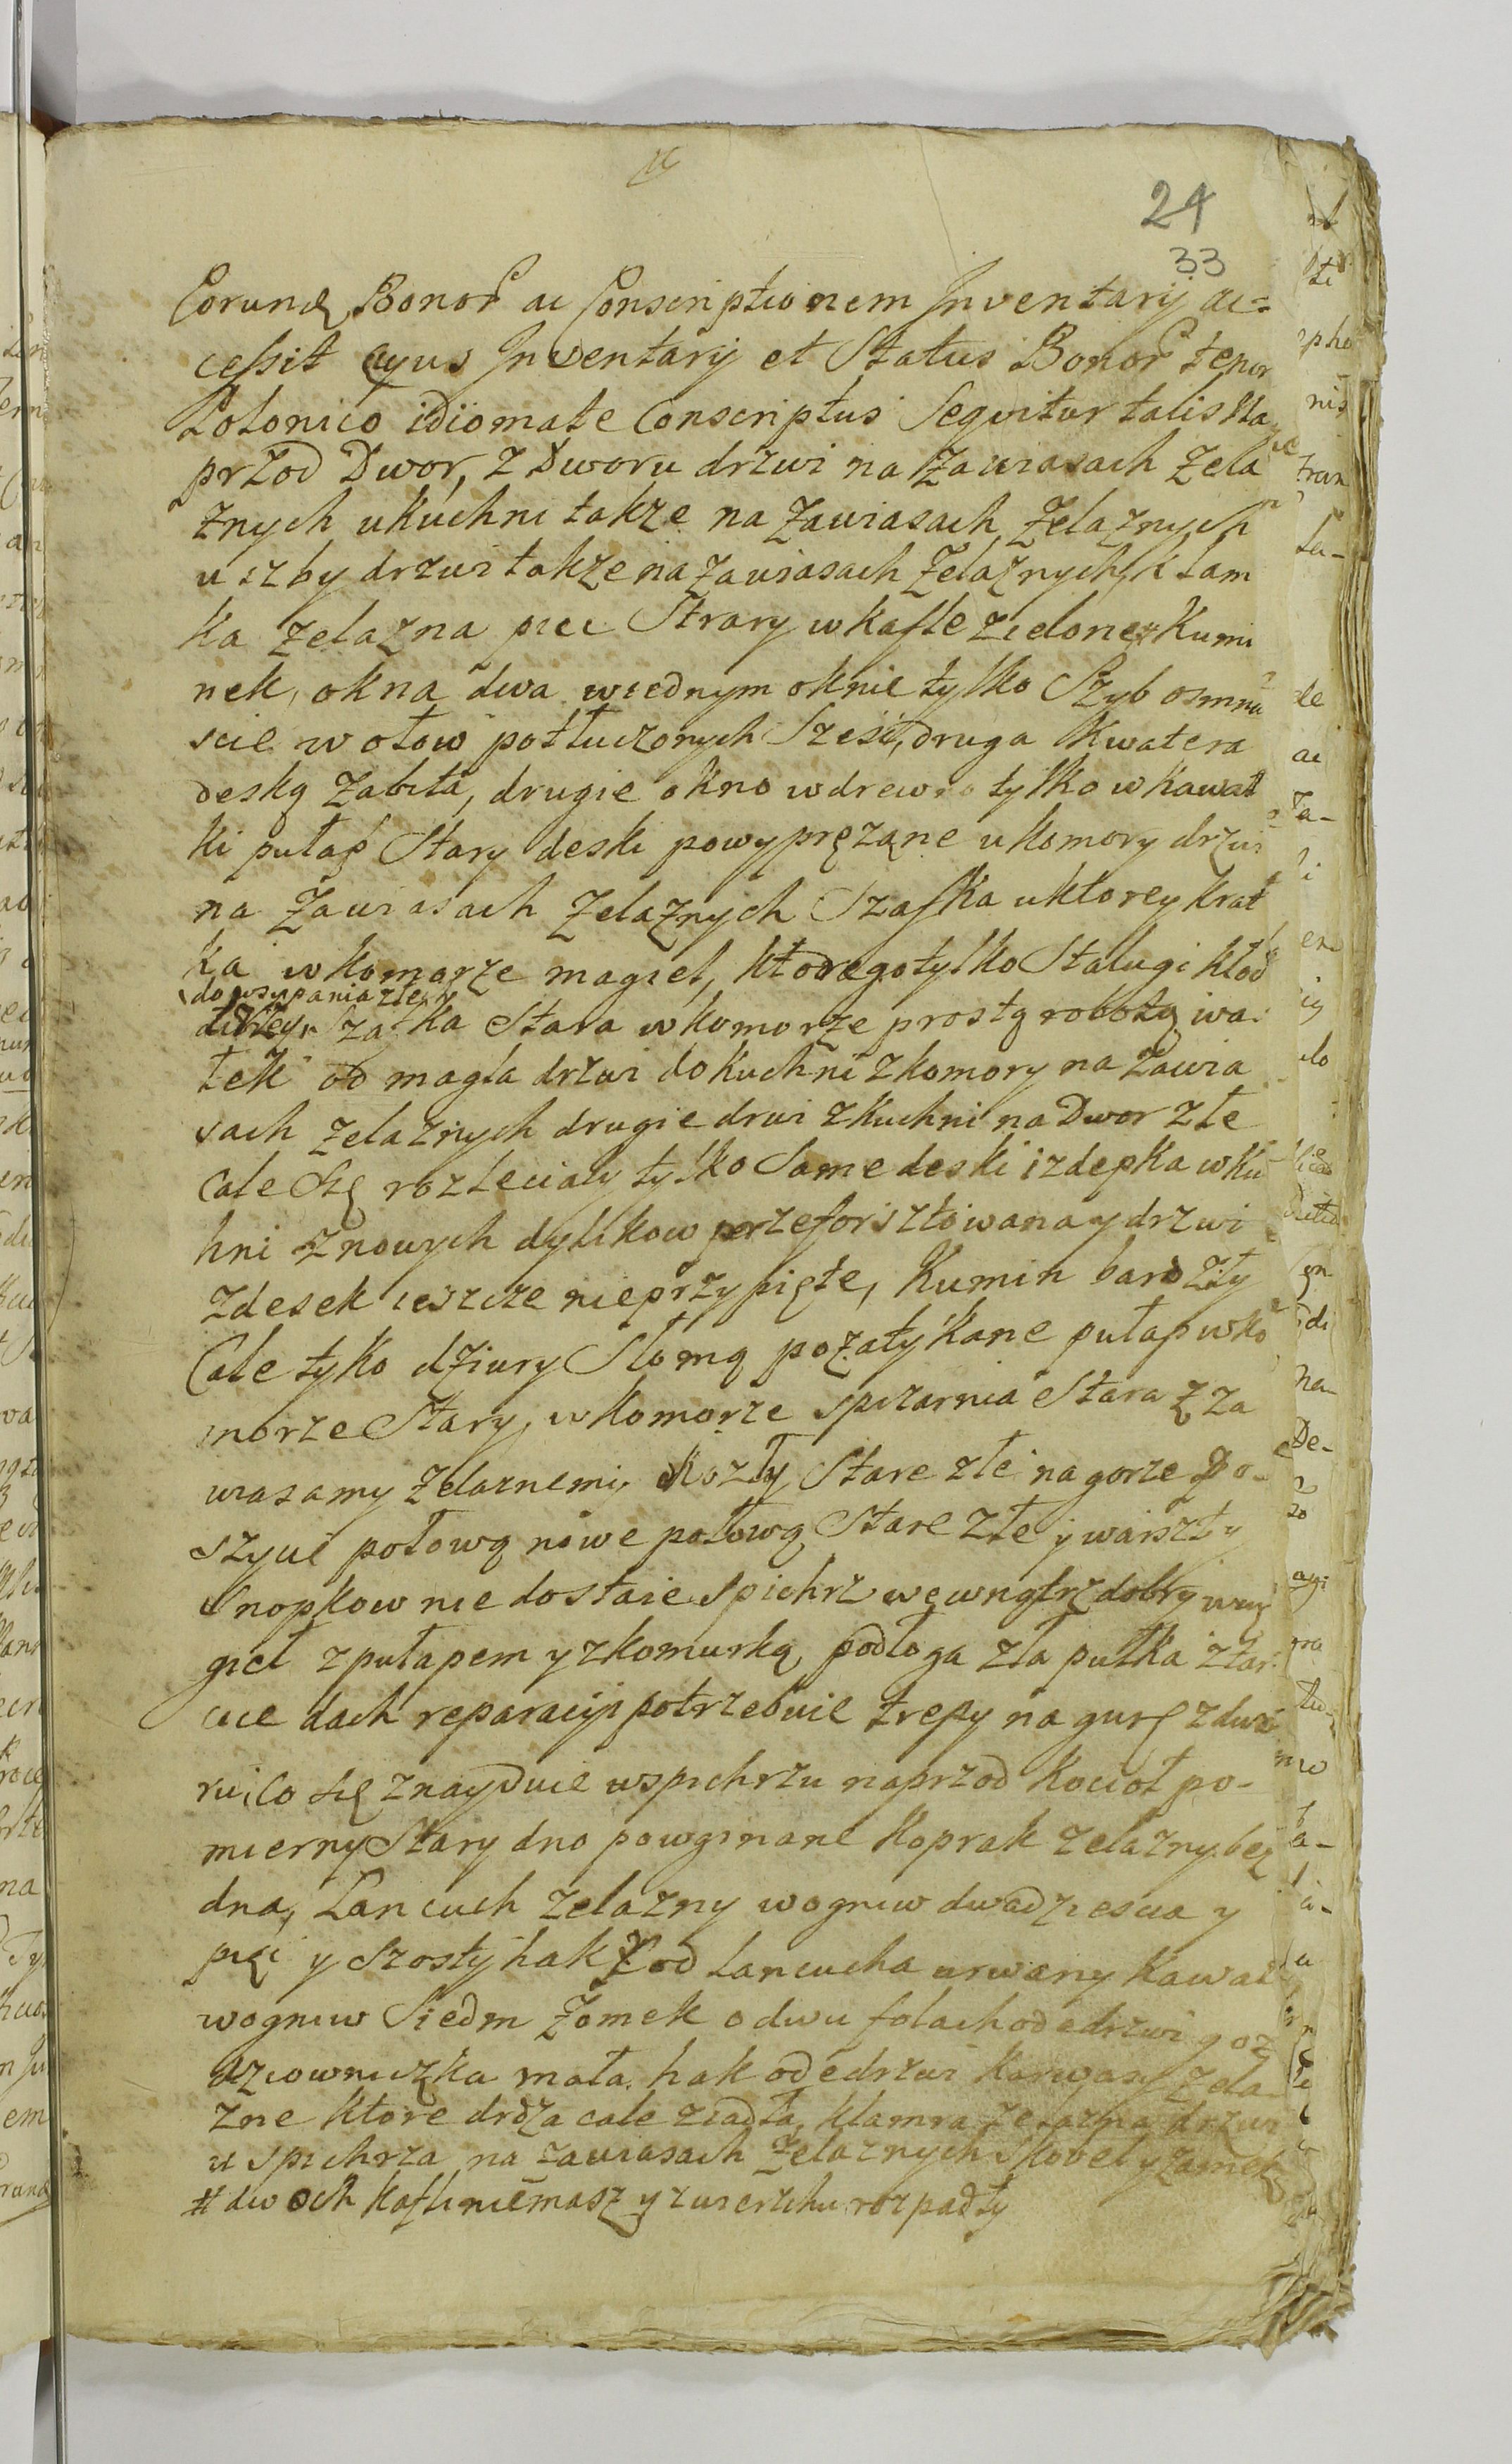 24
33
Eorunde Bonor ac Conscriptionem Inventarij ac=
cessit cujus Inventarij et Status Bonor tenor
Polonico idiomate Conscriptus Sequitur talis Na
przod Dwor, z Dworu drzwi na zawiasach zela
znych ukuchni takze na zawiasach zelaznych
u izby drzwi takze na zawiasach zelaznych, klam
ka zelazna piec Strary w kafle zielone # Kumi
nek, okna dwa wiednym oknie tylko Szyb osmna
scie w ołow potłuczonych Szesc, druga kwatera
deską zabita, drugie okno w drewno tylko w kawał
ki pułap Stary deski powyprężane ukomory drzwi
na zawiasach zelaznych Szafka uktorey krat
ka w komorze magiel, ktorego tylko Stalugi kłod
do wsypania zley
Szafka Stara w komorze prostą robotą wa:
łek od magla drzwi do kuchni z komory na zawia
sach zelaznych drugie drwi z kuchni na Dwor złe
Cale Się rozleciały tylko Same deski izdepka w ku
hni z nowych dylikow przeforsztowana y drzwi
z desek ieszcze nieprzypięte, Kumin bardzły
Cale tyko dziury Słomą pozatykane pułap w ko
morze Stary, w komorze spizarnia Stara z za
wiasamy zelaznemi, Kozły Stare złe na gorze Po-
szycie połową nowe połową Stare złe y warszty
Snopkow nie dostaie Spichrz wewnątrz dobry w wę
gieł z pułapem y z komurką, podłoga zła pułka z tar
cice dach reparacyi potrzebuie trepy na gurę z dwo
ru, Co się znayduie w spichrzu naprzod Kocioł po-
mierny Stary dno powginane Koprak zelazny bez
dna, Lancuch zelazny wogniw dwadziescia y
pięc y Szosty hak od Lancucha urwany kawał
wogniw Siedm Zomek o dwu folach od edrzwi goz
dziowniczka mała, hak od edrzwi Karwasz zela
zne ktore drdza cale ziadła, klamra zelazna drzwi
u spichrza na zawiasach zelaznych Skobel y zamek
# dwoch kafli niemasz y z wierzchu rozpadły